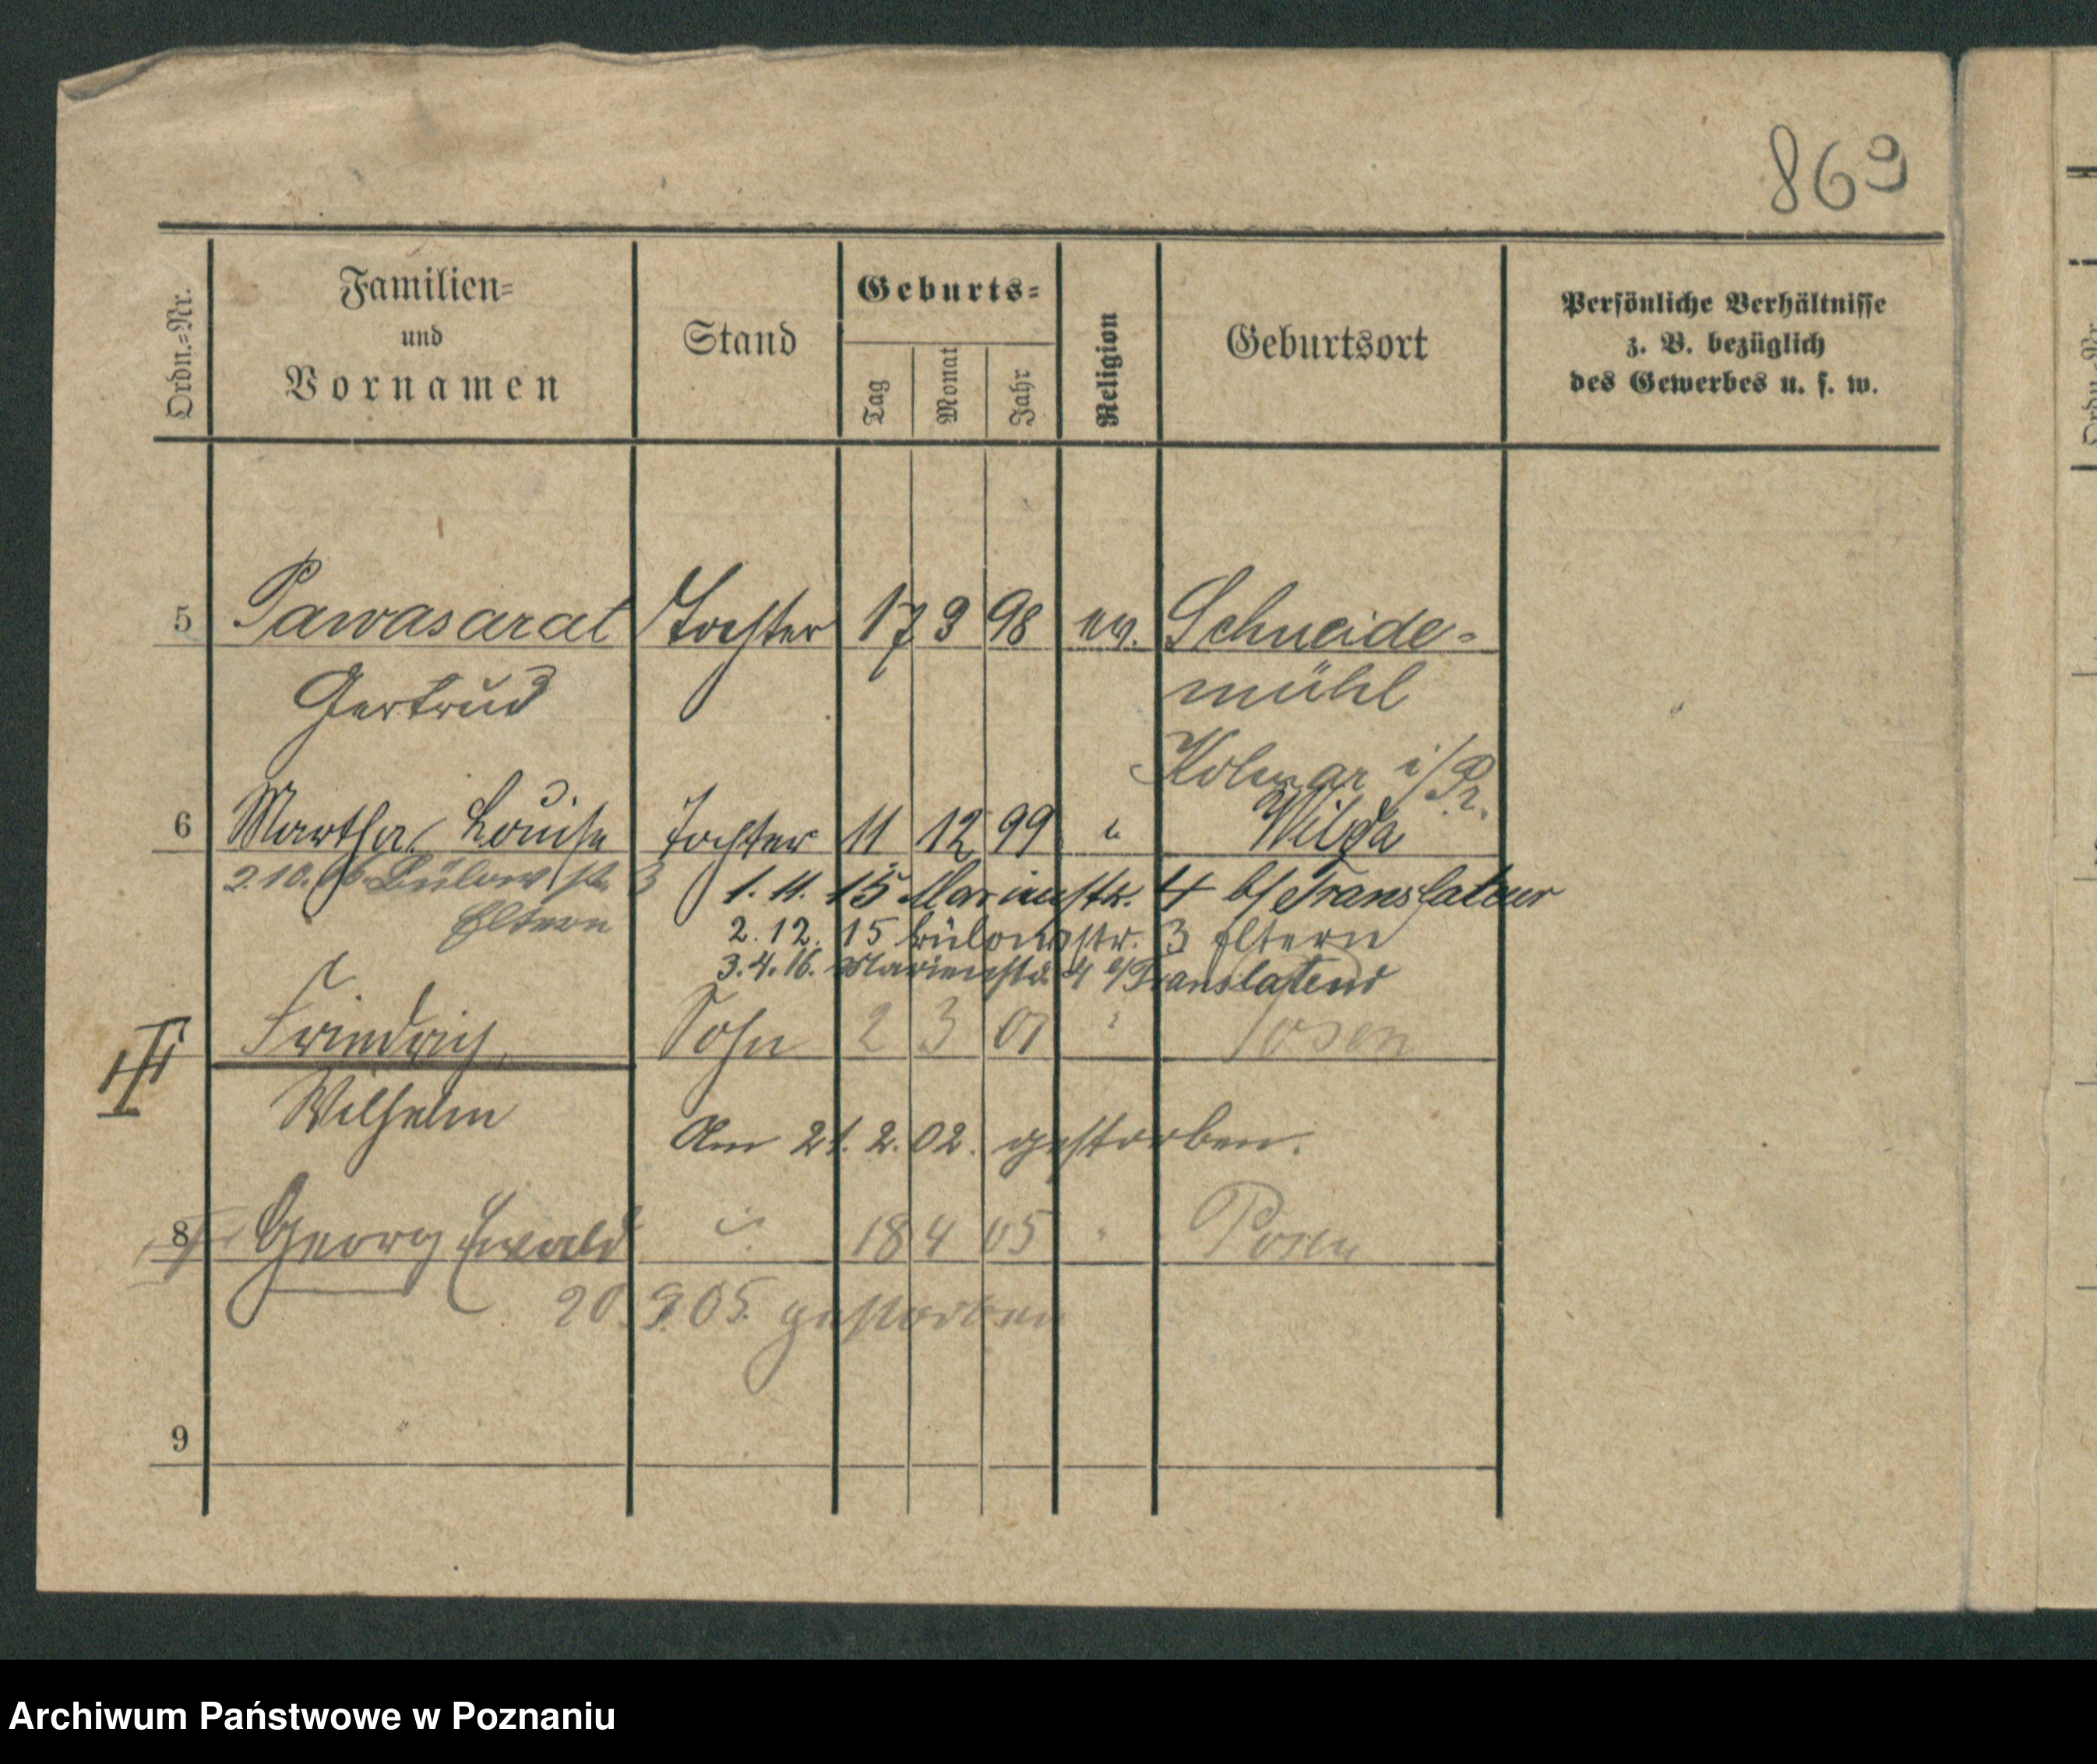 869
Ordn.=Nr. Familien= und Vornamen Stand Geburts= Tag Monat Jahr Religion Geburtsort Persönliche Verhältnisse z. B. bezüglich des Gewerbes u. s. w.
5 Pawasarat Tochter 17 9 98 ev. Schneide-
Gertrud mühl
Kolmar i/Pr.
6 Martha Louise Tochter 11 12 99 " Wilda
2.10.06 Bülowstr. 3 1. 11. 15 Marienstr. 4 b/ Translateur
Eltern 2. 12. 15 Bülowstr. 3 Eltern
3. 4. 16. Marienstr. 4 b/ Translateur
Friedrich Sohn 2 3 01 " Posen
Wilhelm
Am 21. 2. 02. gestorben.
8 Georg Ewald " 18 4 05 " Posen
20.9.05. gestorben
9
Archiwum Państwowe w Poznaniu